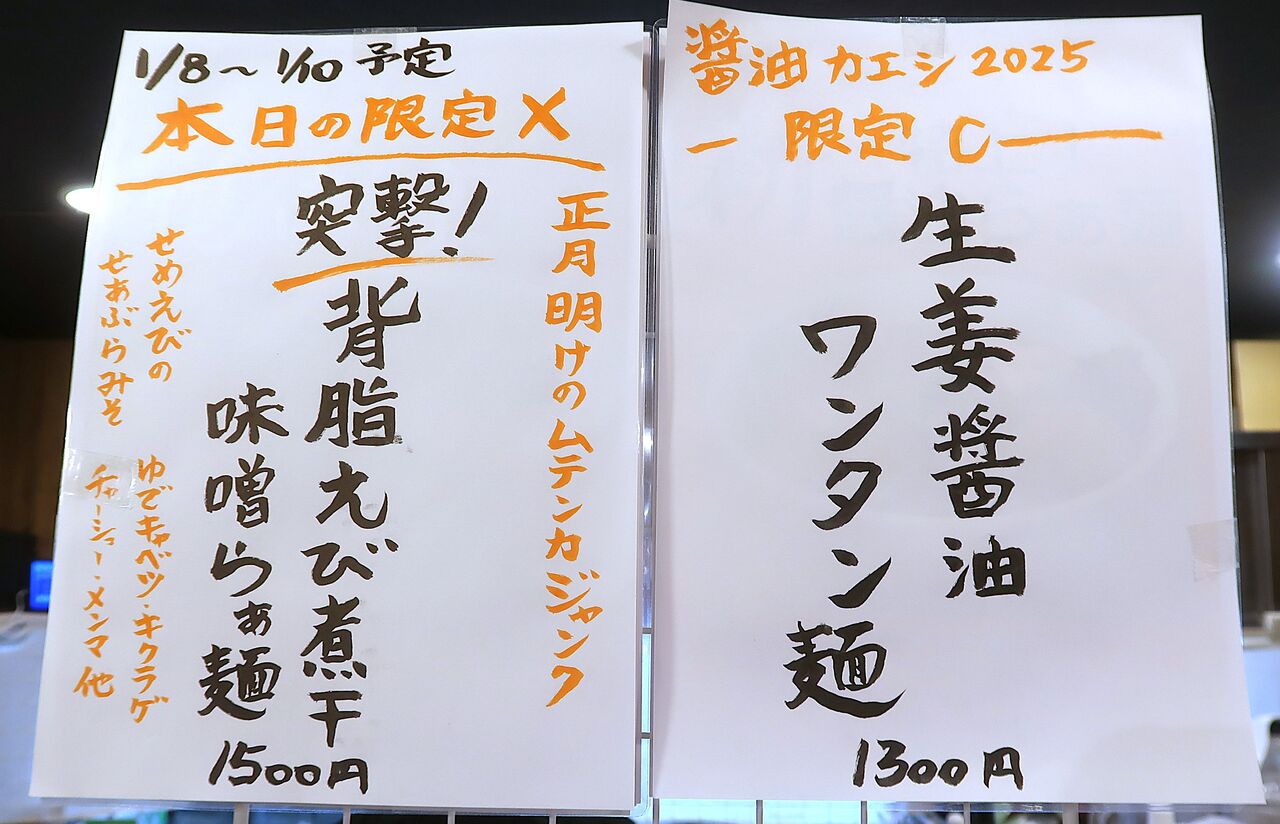 1/8〜1/10予定
本日の限定X
正月明けのムテンカジャンク
突撃!
背脂えび煮干
味噌らぁ麺
1500円
せめえびの
せあぶらみそ
ゆでキャベツ・キクラゲ
チャーシュー・メンマ他
醤油カエシ2025
ー 限定C ー
生姜醤油
ワンタン麺
1300円